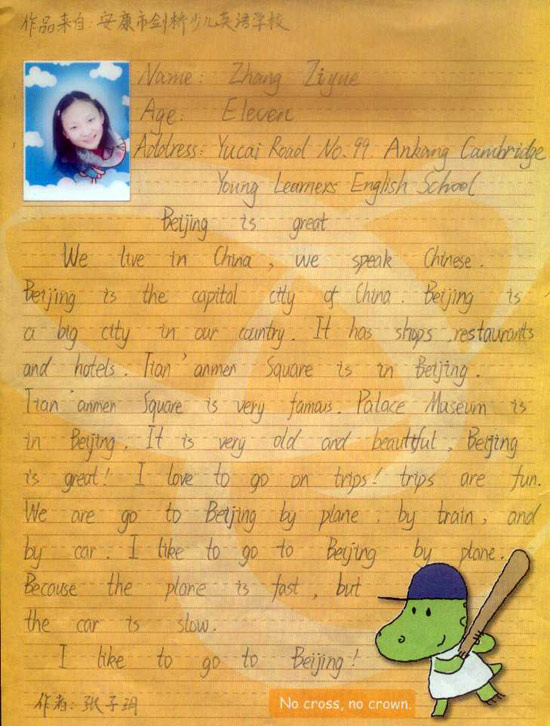 作品来自：安康市剑桥少儿英语学校
Name: Zhang Ziyue
Age: Eleven
Address: Yucai Road No.99. Ankang Cambridge
Young Learners English School
Beijing is great
We live in China, we speak Chinese.
Beijing is the capital city of China. Beijing is
a big city in our country. It has shops, restaurants
and hotels. Tian'anmen Square is in Beijing.
Tian'anmen Square is very famous. Palace Museum is
in Beijing. It is very old and beautiful, Beijing
is great! I love to go on trips! trips are fun.
We are go to Beijing by plane, by train, and
by car. I like to go to Beijing by plane.
Because the plane is fast, but
the car is slow.
I like to go to Beijing!
作者：张子玥
No cross, no crown.